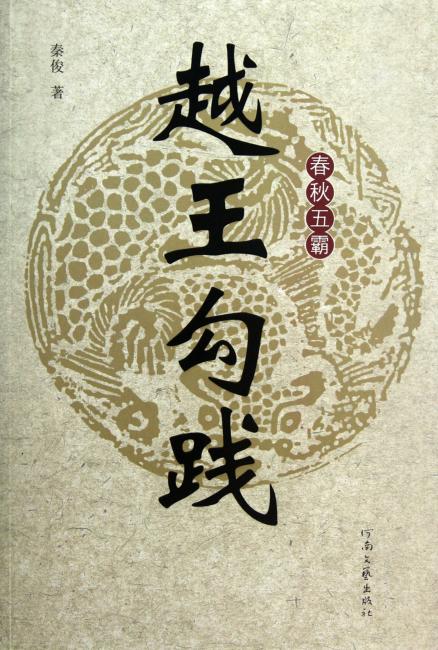 秦俊 著
越王勾践
春秋五霸
河南文艺出版社